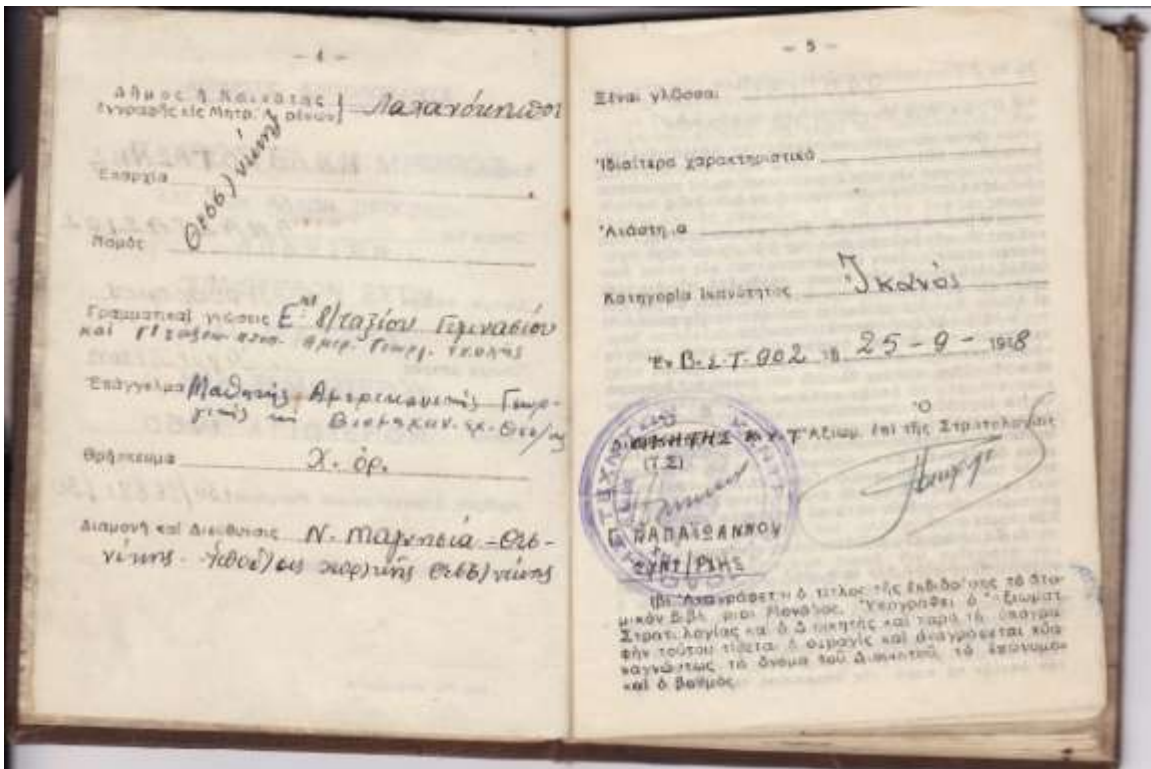 - 4 -
Δῆμος ἢ Κοινότης
ἐγγραφῆς εἰς Μητρ. Ἀρρένων } Λαχανόκηποι
Ἐπαρχία
Νομὸς Θεσσ)νίκης
Γραμματικαὶ γνώσεις Ε 8/ταξίου Γυμνασίου
καὶ Γ' τάξεω Ἀμερ. Γεωργ. Σχολῆς
Ἐπάγγελμα Μαθητὴς Ἀμερικανικῆς Γεωρ-
γικῆς καὶ Βιομηχαν. Σχ. Θεσ/κης
Θρήσκευμα Χ. ὀρ.
Διαμονὴ καὶ Διεύθυνσις Ν. Μαγνησία - Θεσ-
νίκης Θεσσ)νίκης
- 5 -
Ξέναι γλῶσσαι
Ἰδιαίτερα χαρακτηριστικὰ
Ἀνάστημα
Κατηγορία ἱκανότητος Ἱκανὸς
Ἐν Β.Σ.Τ. 902 τῇ 25 - 9 - 1958
Ὁ
ΔΙΟΙΚΗΤΗΣ Ἀξιωμ. ἐπὶ τῆς Στρατολογίας
(Τ.Σ)
Γ. ΠΑΠΑΪΩΑΝΝΟΥ
ΣΥΝΤ/ΡΧΗΣ
(β) Ἀναγράφεται ὁ τίτλος τῆς ἐκδιδούσης τὸ ἀτο-
μικὸν βιβλιάριον Μονάδος. Ὑπογράφει ὁ Ἀξιωματ.
Στρατολογίας καὶ ὁ Διοικητὴς καὶ παρὰ τὴν ὑπογρα-
φὴν τούτου τίθεται ἡ σφραγὶς καὶ ἀναγράφεται εὐα-
ναγνώστως τὸ ὄνομα τοῦ Διοικητοῦ, τὸ ἐπώνυμον
καὶ ὁ βαθμός.